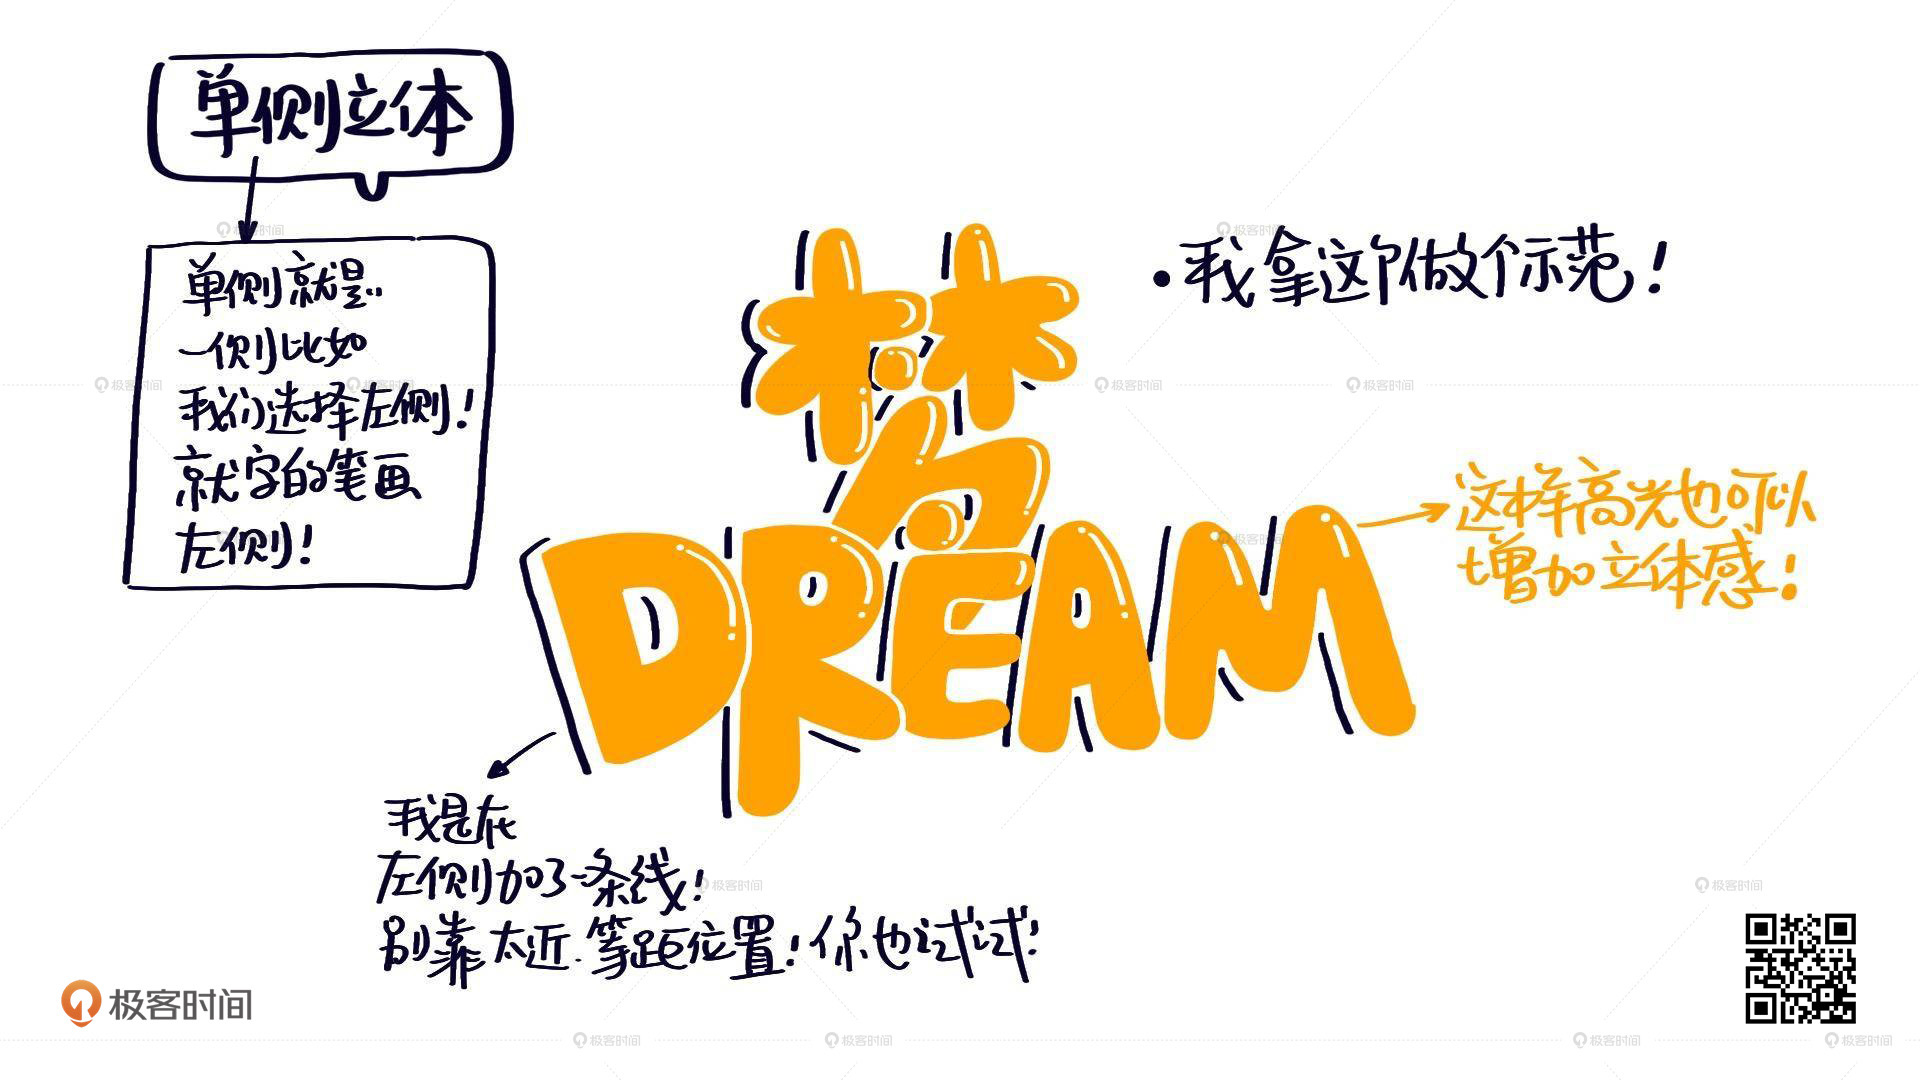 单侧立体
单侧就是..
一侧比如
我们选择左侧!
就字的笔画
左侧!
·我拿这个做个示范!
梦
DREAM
这样高光也可以
增加立体感!
我是在
左侧加了一条线!
别靠太近.等距位置!你也试试!
极客时间